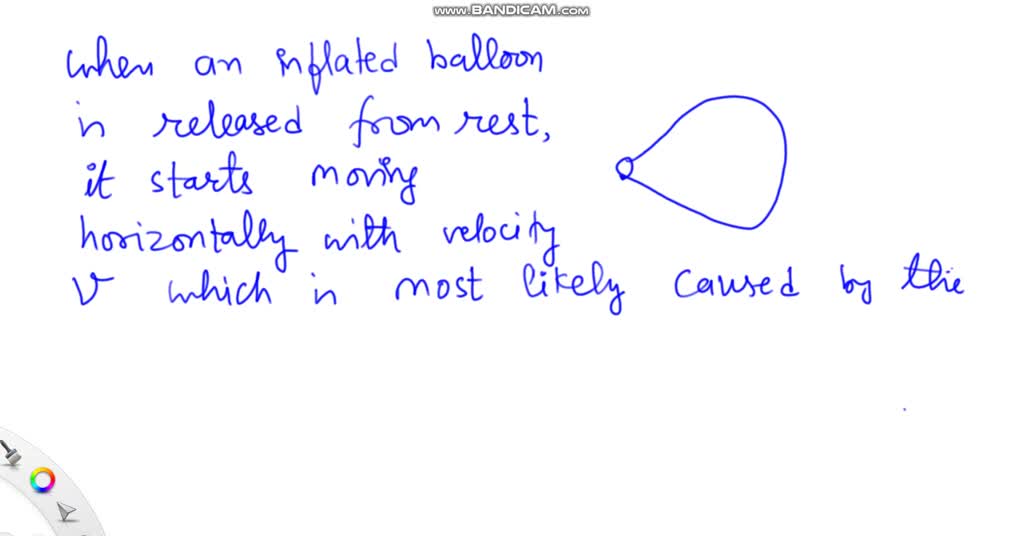 www.BANDICAM.com
when an inflated balloon
is released from rest,
it starts moving
horizontally with velocity
V which is most likely caused by the